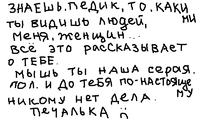 ЗНАЕШЬ. ПЕДИК, ТО, КАКИ
МИ
ТЫ ВИДИШЬ ЛЮДЕЙ,
МЕНЯ, ЖЕНЩИН...
ВСЁ ЭТО РАССКАЗЫВАЕТ
О ТЕБЕ.
МЫШЬ ТЫ НАША СЕРАЯ.
ПОЛ. И ДО ТЕБЯ ПО-НАСТОЯЩЕ
МУ
НИКОМУ НЕТ ДЕЛА.
ПЕЧАЛЬКА